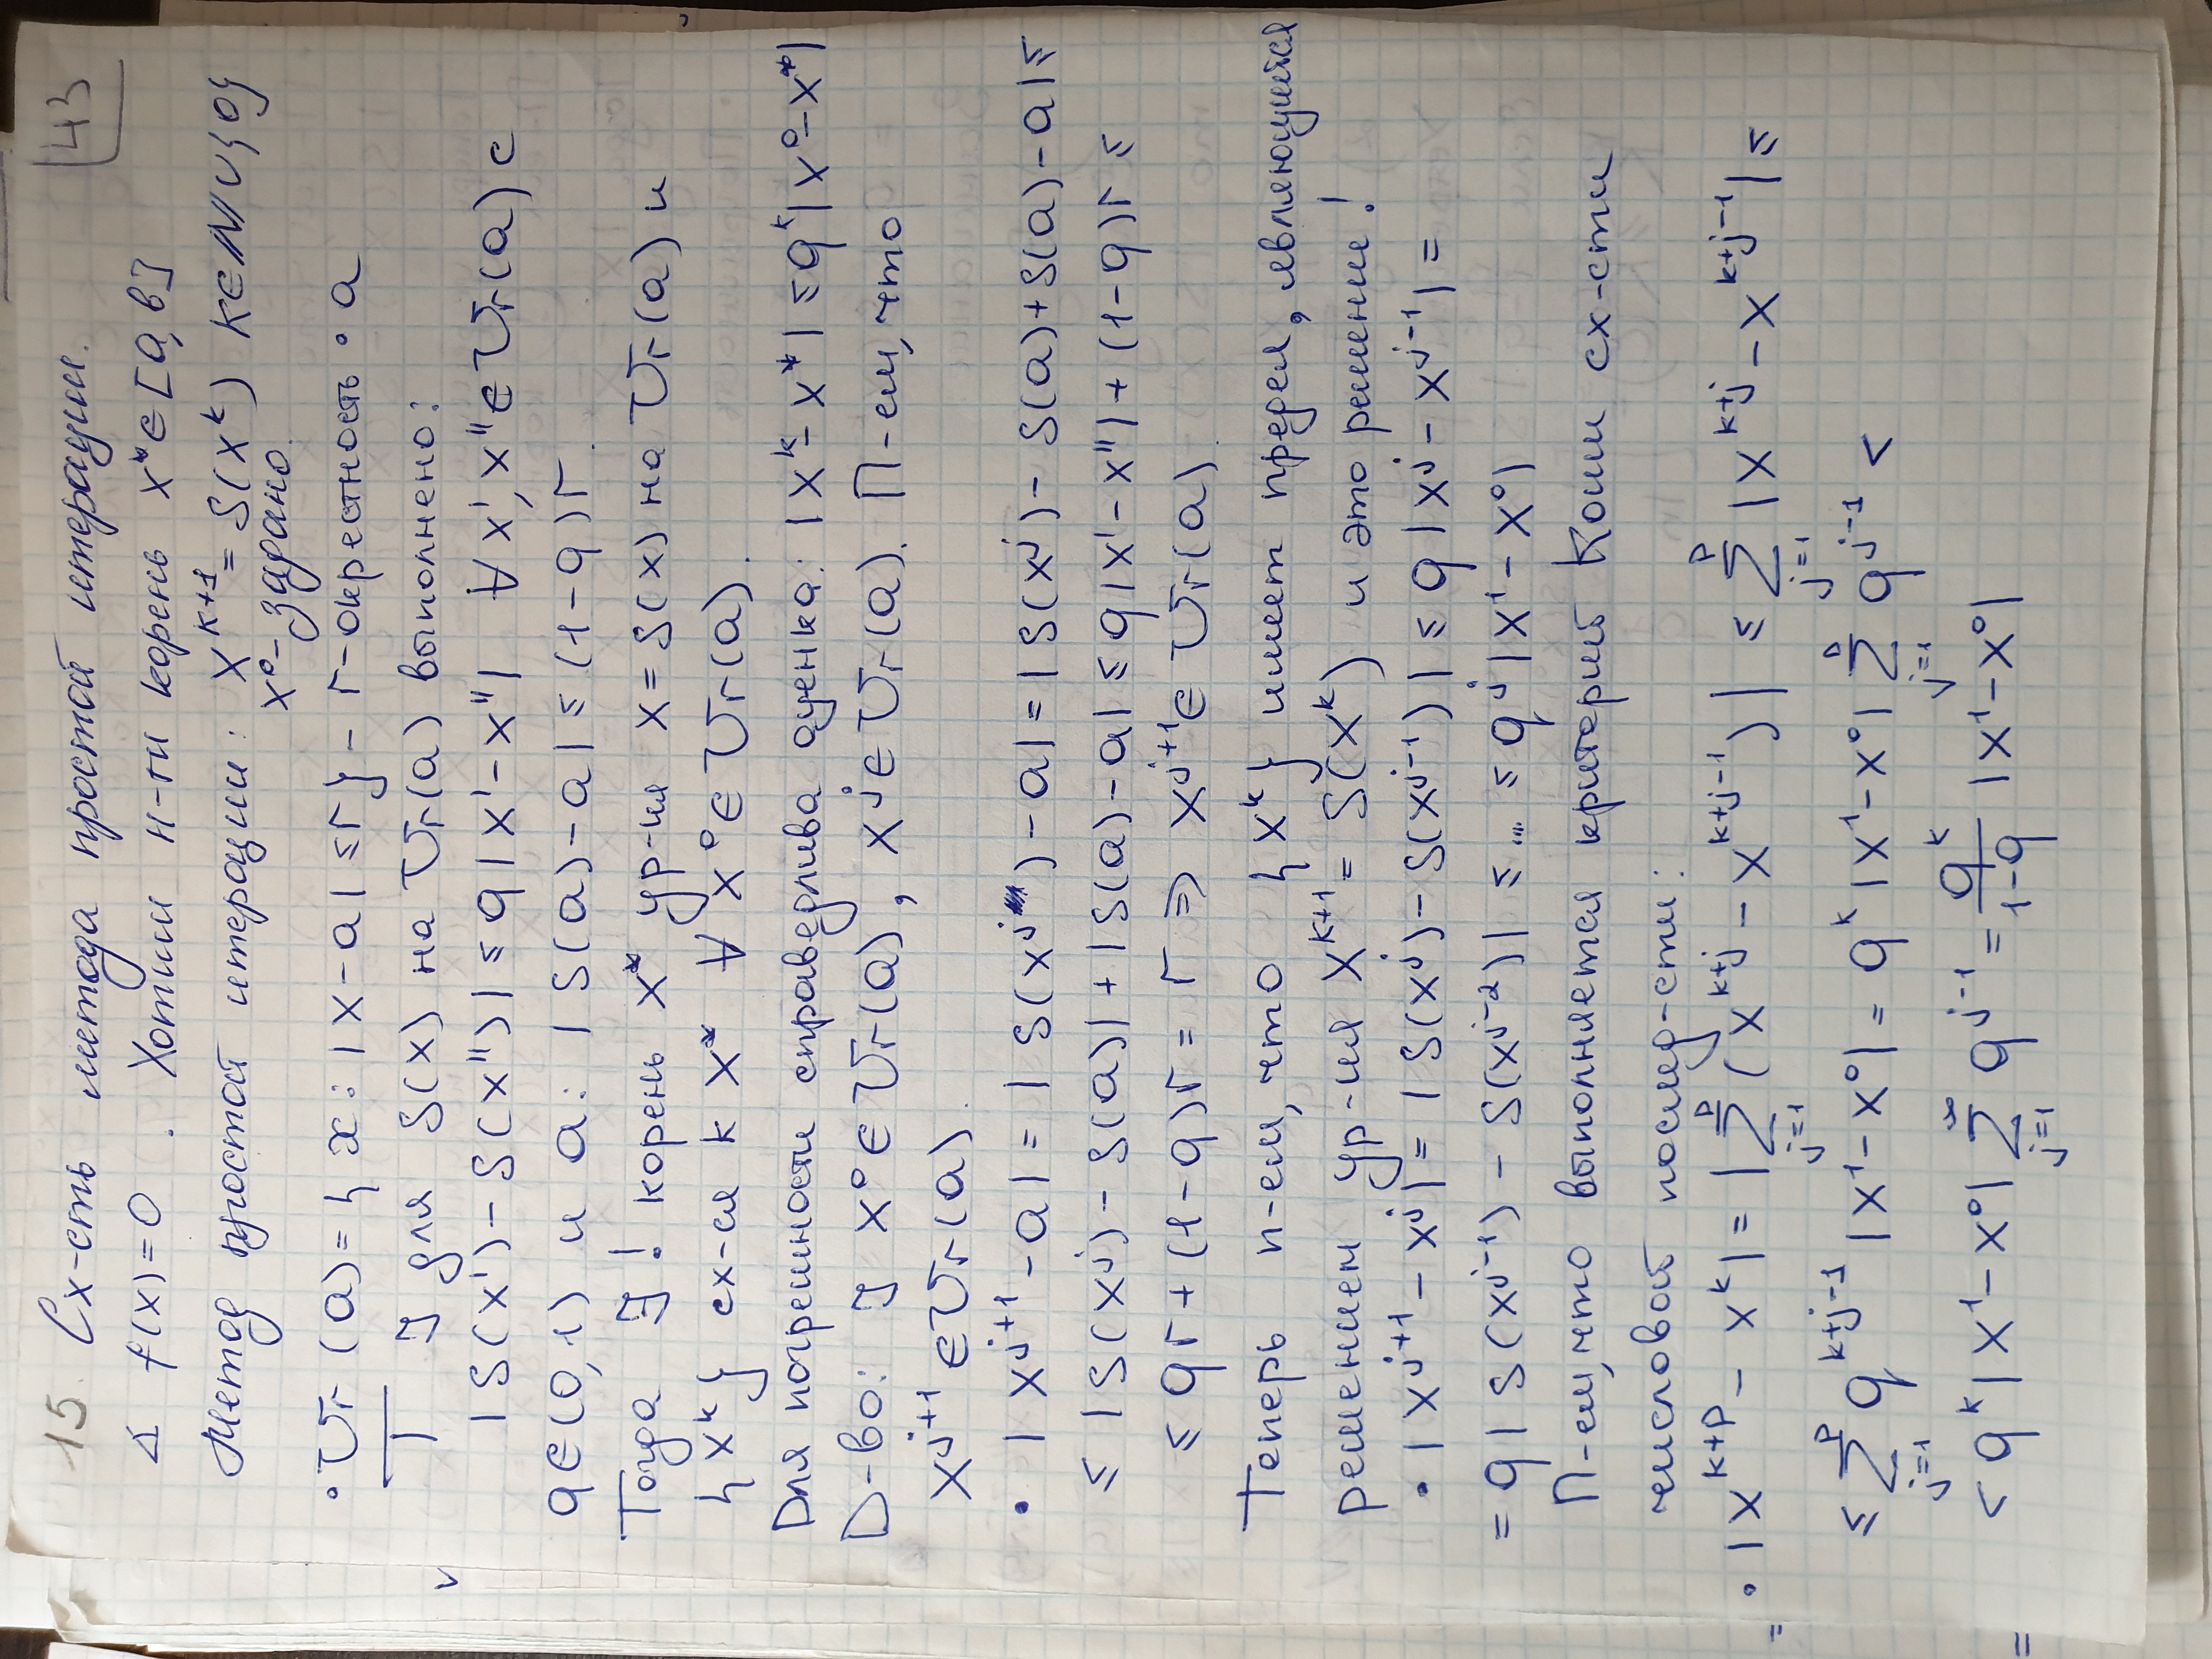 43
15. Сх-сть метода простой итерации.
Δ f(x)=0 . Хотим н-ти корень x*∈[a,b]
Метод простой итерации: x^{k+1}=S(x^k) k∈ℕ∪{0}
x⁰-задано.
• U_r(a)={x: |x-a|≤r} - r-окрестность • a
T ∃ для S(x) на U_r(a) выполнено:
|S(x')-S(x'')|≤q|x'-x''| ∀x',x''∈U_r(a) с
q∈(0,1) и a: |S(a)-a|≤(1-q)r.
Тогда ∃! корень x* ур-ия x=S(x) на U_r(a) и
{x^k} сх-ся к x* ∀ x⁰∈U_r(a).
Для погрешности справедлива оценка: |x^k-x*|≤q^k|x⁰-x*|
D-во: ∃ x⁰∈U_r(a), x^j∈U_r(a). П-ем, что
x^{j+1}∈U_r(a).
• |x^{j+1}-a|=|S(x^j)-a|=|S(x^j)-S(a)+S(a)-a|≤
≤|S(x^j)-S(a)|+|S(a)-a|≤q|x'-x''|+(1-q)r≤
≤qr+(1-q)r=r ⇒ x^{j+1}∈U_r(a).
Теперь п-ем, что {x^k} имеет предел, являющийся
решением ур-ия x^{k+1}=S(x^k) и это решение!
• |x^{j+1}-x^j|=|S(x^j)-S(x^{j-1})|≤q|x^j-x^{j-1}|=
=q|S(x^{j-1})-S(x^{j-2})|≤...≤q^j|x¹-x⁰|
П-ем, что выполняется критерий Коши сх-сти
числовой послед-сти:
• |x^{k+p}-x^k|=|∑_{j=1}^{p}(x^{k+j}-x^{k+j-1})|≤∑_{j=1}^{p}|x^{k+j}-x^{k+j-1}|≤
≤∑_{j=1}^{p}q^{k+j-1}|x¹-x⁰|=q^k|x¹-x⁰|∑_{j=1}^{p}q^{j-1}<
<q^k|x¹-x⁰|∑_{j=1}^{∞}q^{j-1}=\frac{q^k}{1-q}|x¹-x⁰|